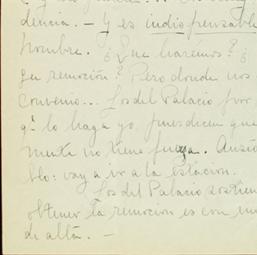 dencia. — Y es indispensable
hombre. ¿Que haremos? ¿
su remoción? Pero donde nos
convenio... Los del Palacio por
qᵉ lo haga yo, pues dicen que
mente no tiene fuerza. Ansío
blo: voy a ir a la estacion.
Los del Palacio sostien
obtener la remocion es con un
de alta. —